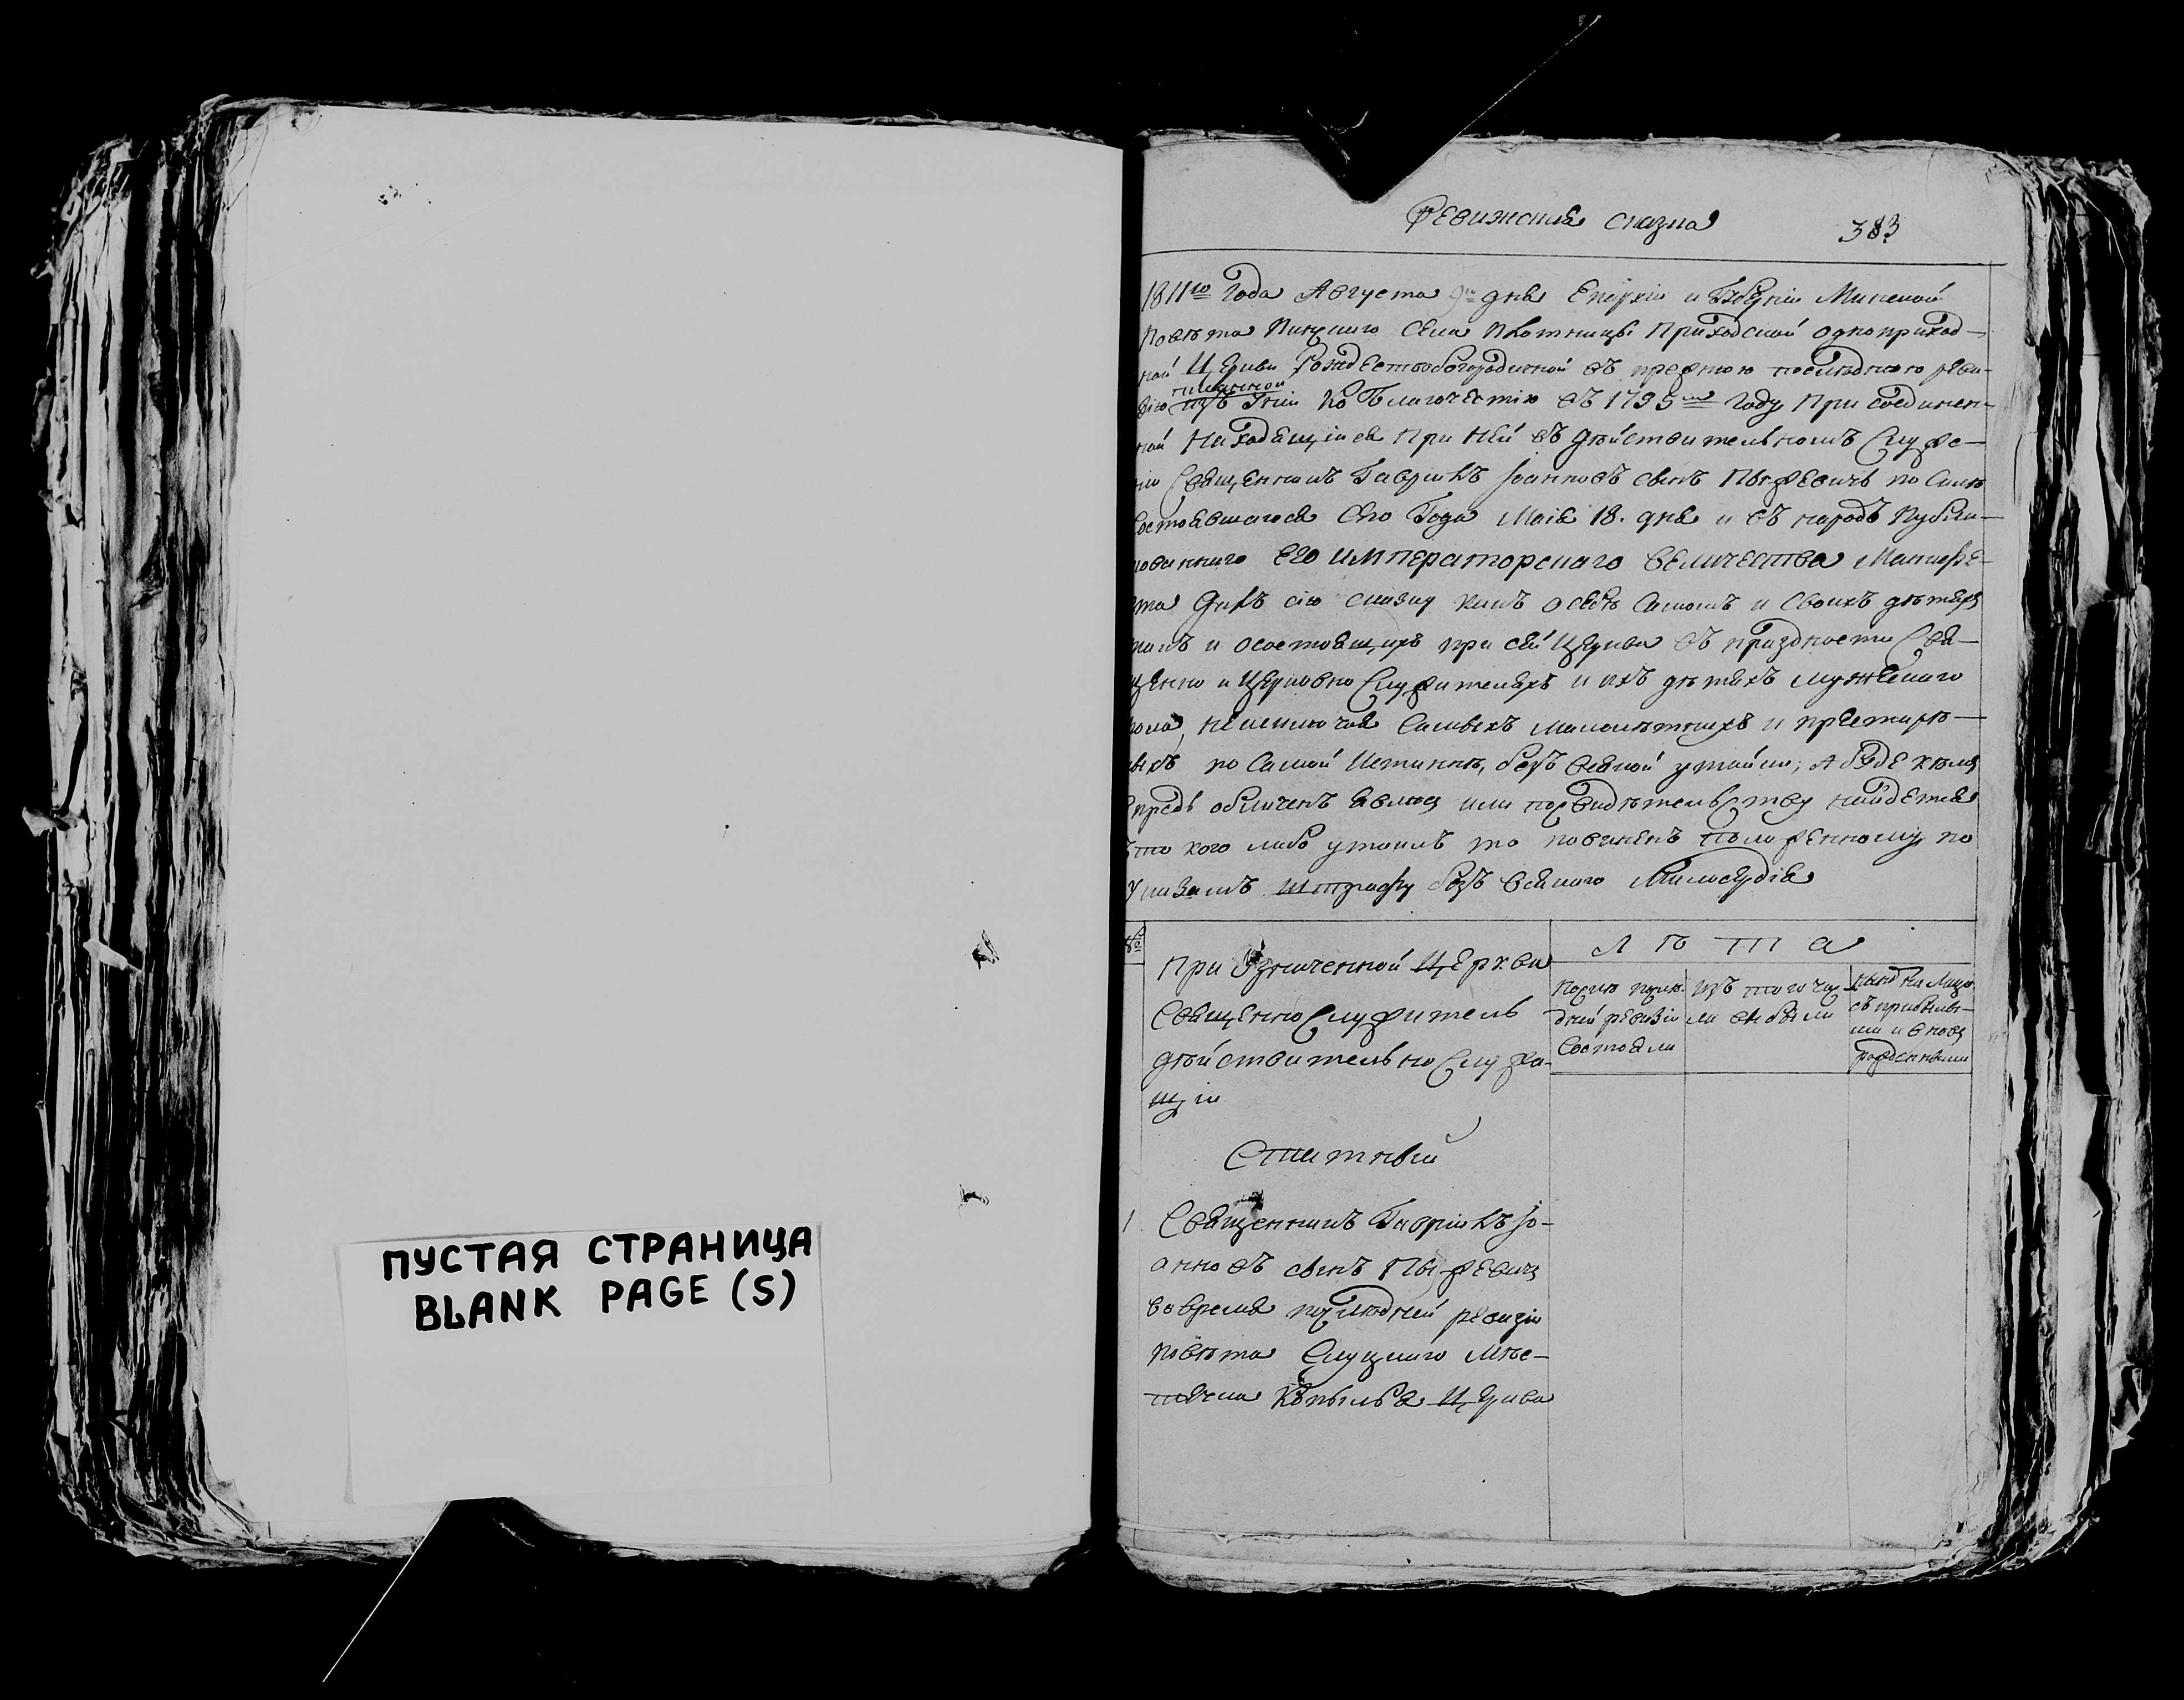 ПУСТАЯ СТРАНИЦА
BLANK PAGE (S)
Ревижская сказка
383
1811го Года Августа 9го дня Епархіи и Губерніи Минской
Повѣта Пинскаго Села Плотницы Приходской одноприход-
ной Церкви Рождествобогородичной въ прежнюю последнюю реви-
писанной
зію изъ Уніи Ко Благочестію въ 1795м Году Присоединен-
ной Находящійся При Ней въ дѣйствительномъ Служе-
ніи Священникъ Гавріилъ Іоанновъ сынъ Пыжевичъ по Силѣ
Состоявшагося Сего Года Маія 18. дня и въ народъ Публи-
кованнаго Его императорскаго величества Манифе-
ста Далъ сію сказку какъ о себѣ Самомъ и Своихъ дѣтяхъ
такъ и о состоящихъ при сей Церкви въ праздности Свя-
щенно и Церковно Служителяхъ и ихъ дѣтяхъ мужескаго
пола, неисключая Самыхъ малолѣтнихъ и престарѣ-
лыхъ по Самой Истиннѣ, безъ всякой утайки; А буде кѣмъ
впредь обличенъ явлюсь или по свидѣтельству найдется
что кого либо утаилъ то повиненъ положенному по
Указамъ штрафу безъ всякаго Милосердія
№
При Означенной Церкви
Священно Служитель
дѣйствительно Служа-
щіи
Л ѣ т а
По сию послѣ-
дней ревизіи
Состояли
изъ того чи-
сла выбыли
ныне на Лицо
съ прибылы-
ми и вновь
рожденными
Статный
1 Священникъ Гавріилъ Іо-
анновъ сынъ Пыжевичъ
во время послѣдней ревизіи
повѣта Слуцкаго Мѣс-
течка Копыля Церкви